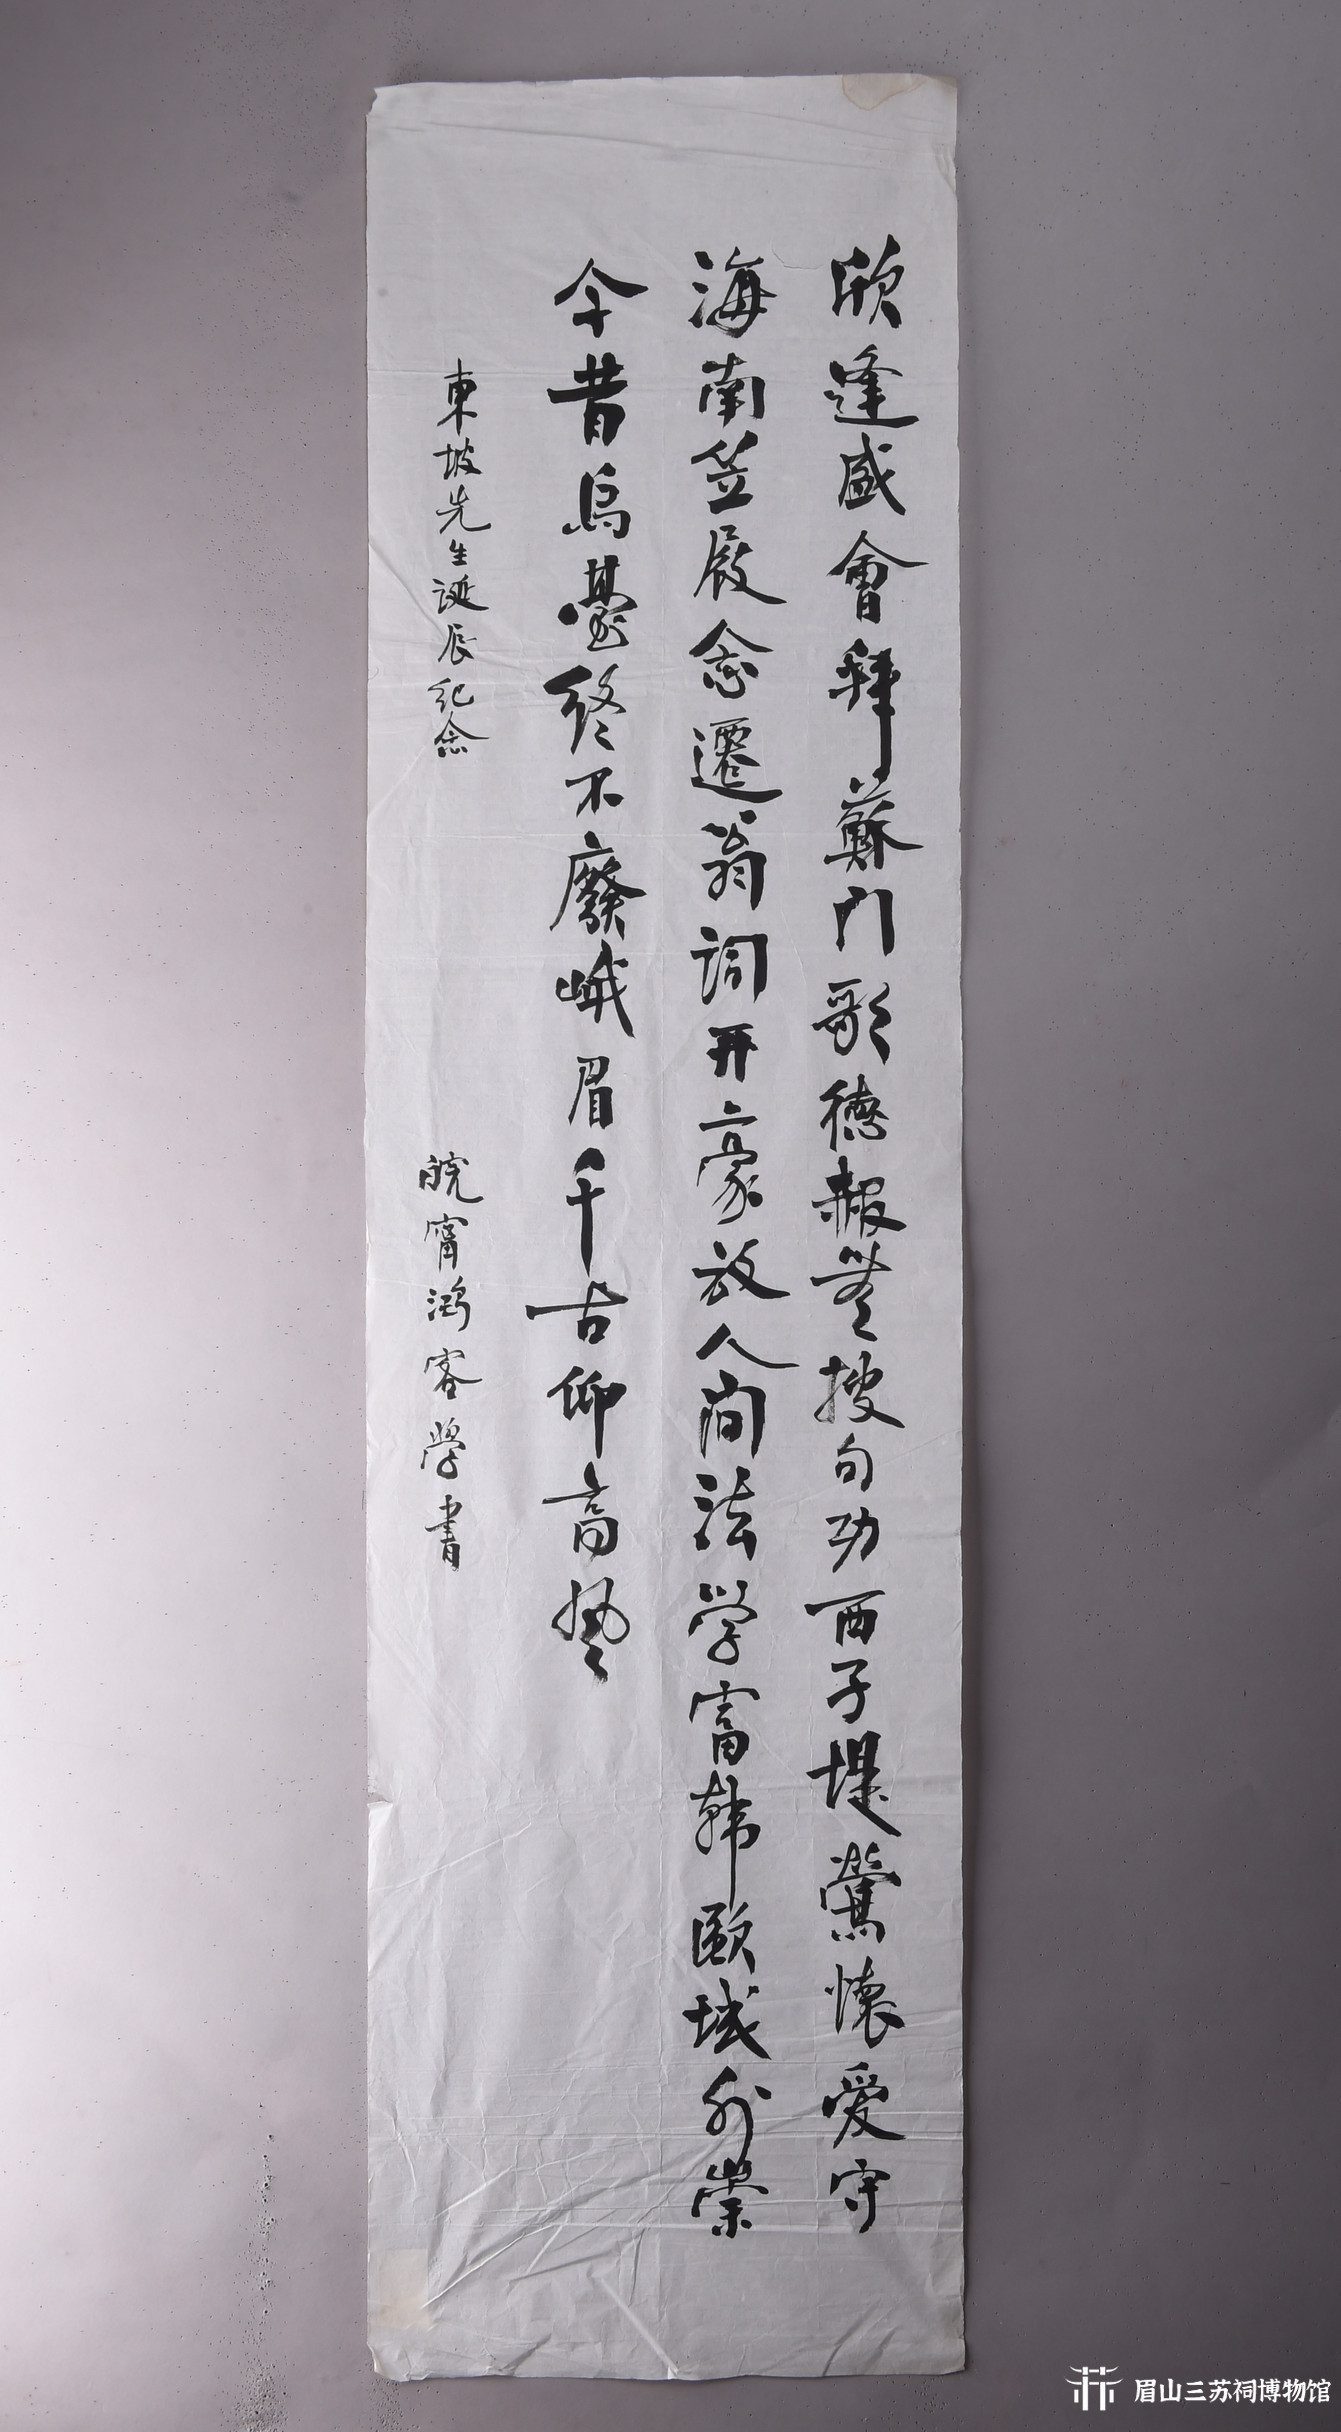 欣逢盛會拜蘇門歌德赧無搜句功西子堤鶯懷愛守
海南笠屐念遷翁詞开豪放人間法学富韓歐域外崇
今昔烏臺終不廢峨眉千古仰高風
東坡先生誕辰纪念
皖甯鴻客學書
眉山三苏祠博物馆